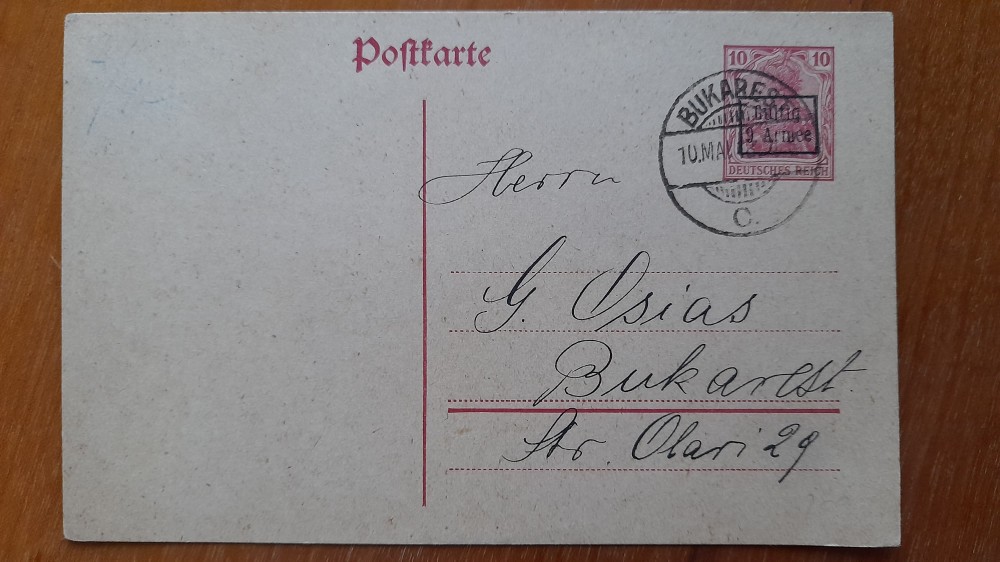 Postkarte
10 10
BUKAREST
Gültig
9. Armee
10.MAI
DEUTSCHES REICH
C.
Herrn
G. Osias
Bukarest.
Str. Olari 29